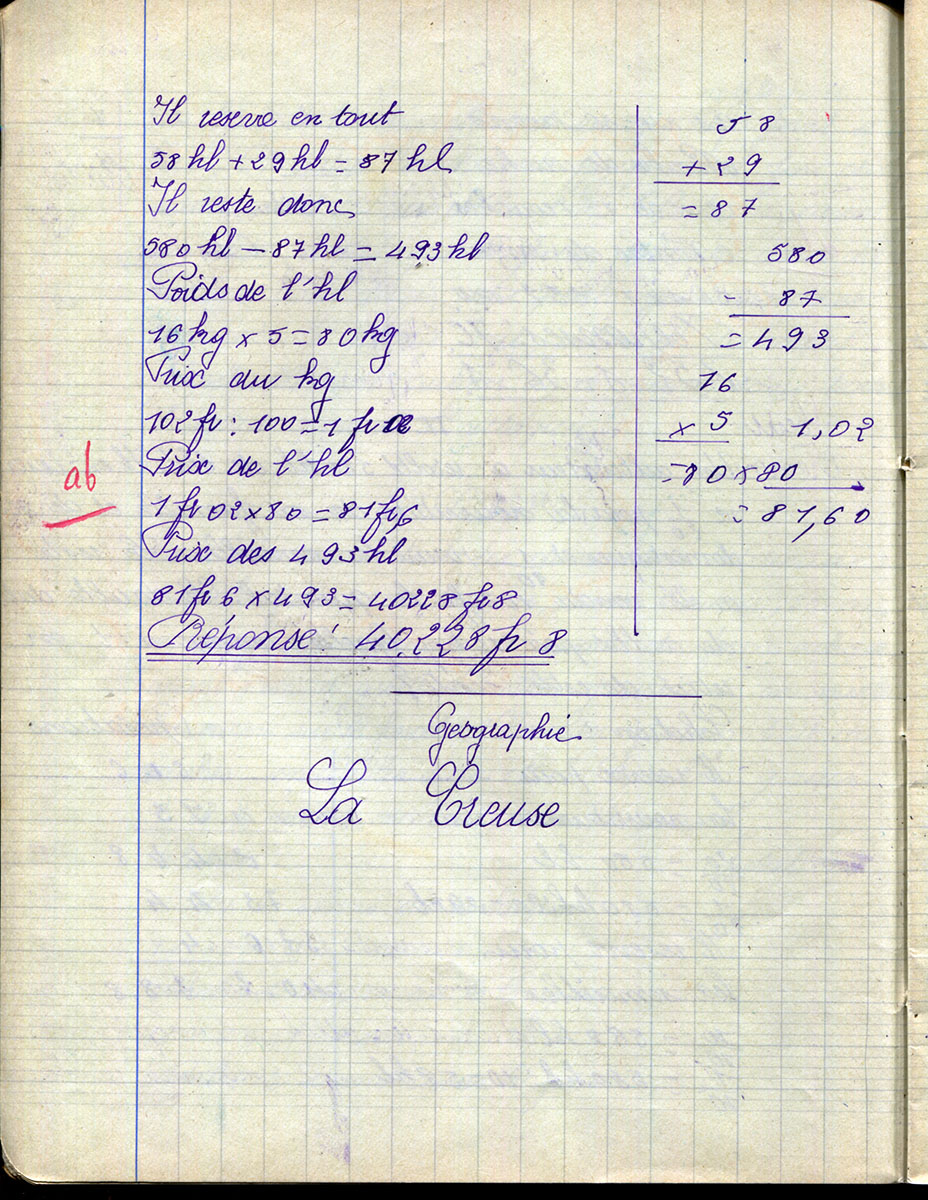 Il reserve en tout
58 hl + 29 hl = 87 hl
Il reste donc
580 hl — 87 hl = 493 hl
Poids de l'hl
16 kg x 5 = 80 kg
Prix du kg
102 fr : 100 = 1 fr 02
Prix de l'hl
1 fr 02 x 80 = 81 fr,6
Prix des 493 hl
81 fr 6 x 493 = 40228 fr 8
Réponse : 40.228 fr 8
ab
58
+ 29
= 87
580
- 87
= 493
16
x 5
= 80
1,02
x 80
= 81,60
Géographie
La Creuse